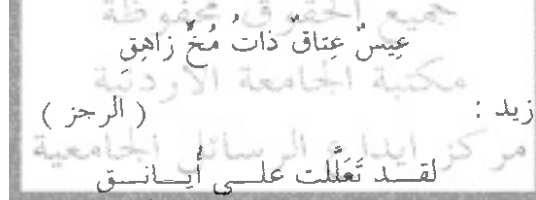 جميع الحقوق محفوظة
عِيسٌ عِتاقٌ ذاتُ مُخٍّ زاهِقِ
مكتبة الجامعة الأردنية
زيد : ( الرجز )
مركز ايداع الرسائل الجامعية
لقد تَعَلَّلت على أيانق